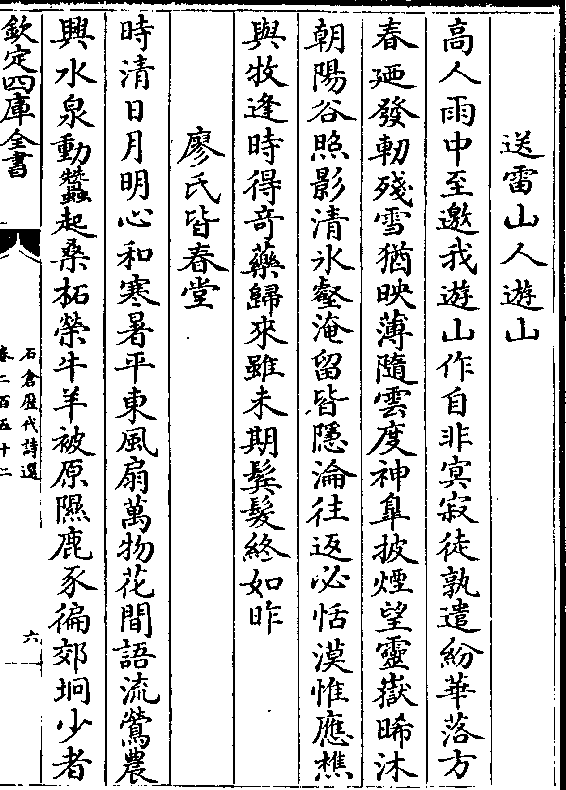 送雷山人遊山
高人雨中至邀我遊山作自非冥寂徒孰遣紛華落方
春廼發軔殘雪猶映薄隨雲度神臯披煙望靈嶽晞沐
朝陽谷照影清氷壑淹留皆隱淪往返必恬漠惟應樵
與牧逢時得竒藥歸來雖未期鬂髮終如昨
廖氏皆春堂
時清日月明心和寒暑平東風扇萬物花間語流鶯農
興水泉動蠶起桑柘榮牛羊被原隰鹿豕徧郊坰少者
欽定四庫全書
石倉歷代詩選
卷二百五十二
六